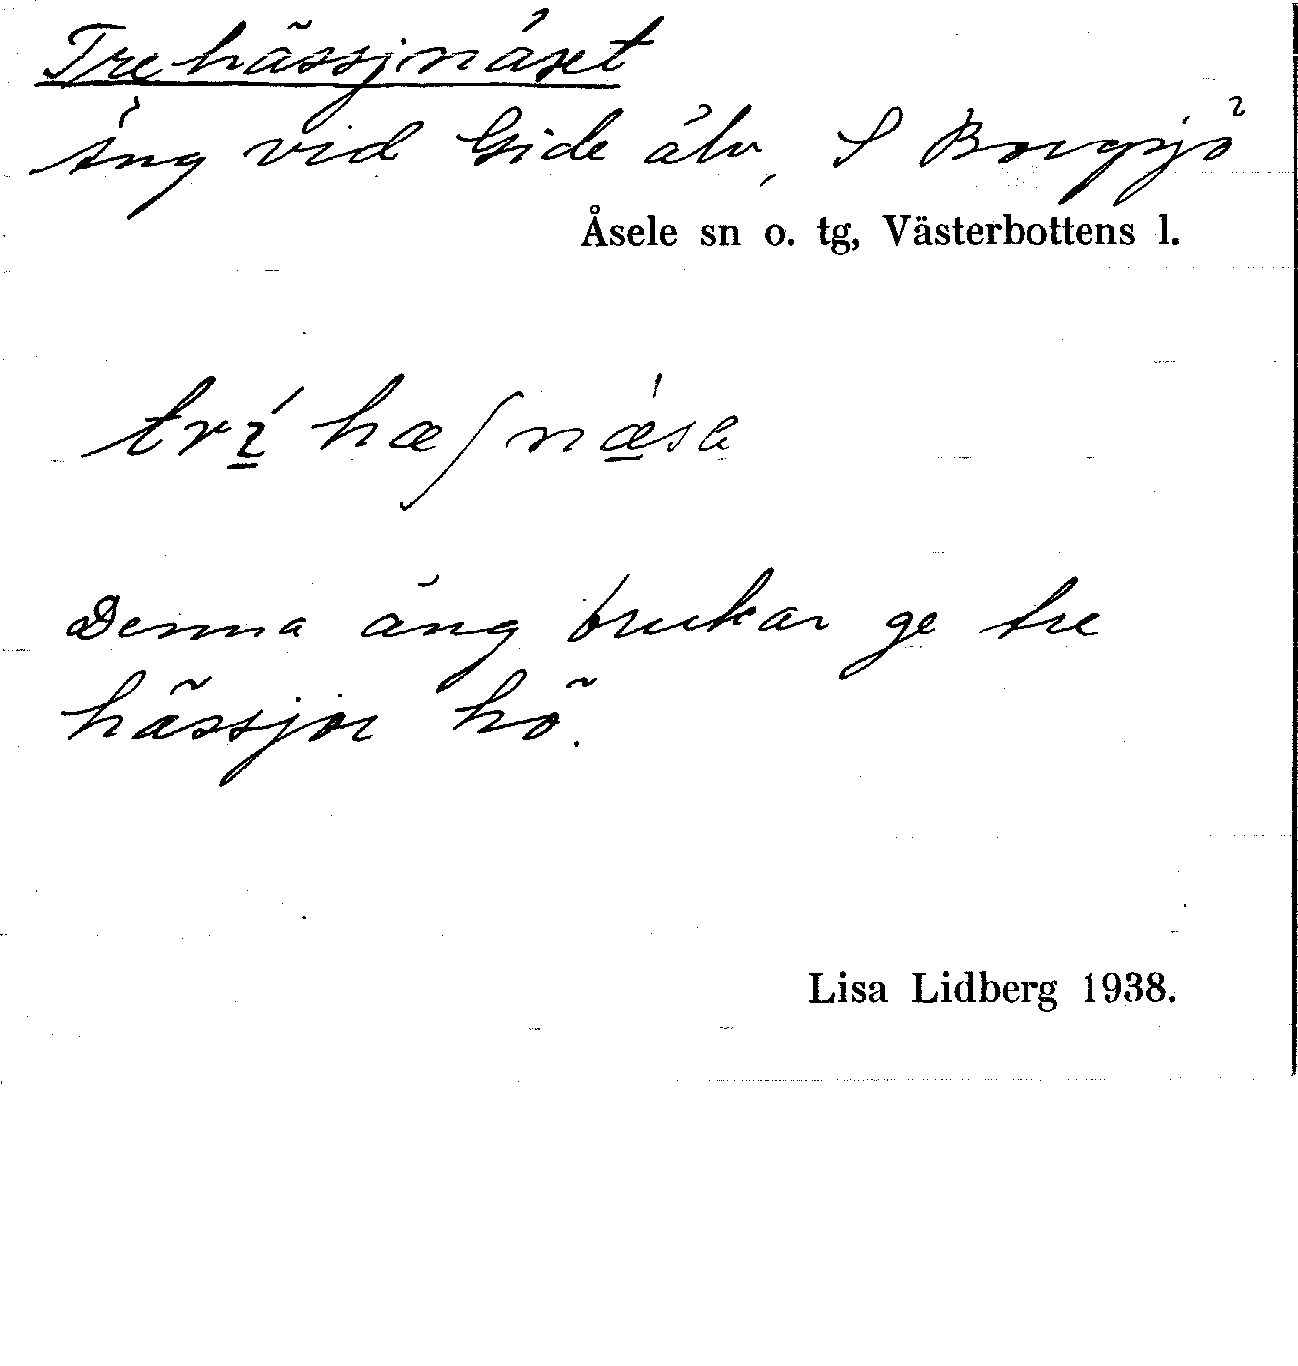 Trehässjnäset
äng vid Gide älv, S Borgsjö
Åsele sn o. tg, Västerbottens l.
trí̱ hæʃnǽ̱sa
Denna äng brukar ge tre
hässjor hö.
Lisa Lidberg 1938.